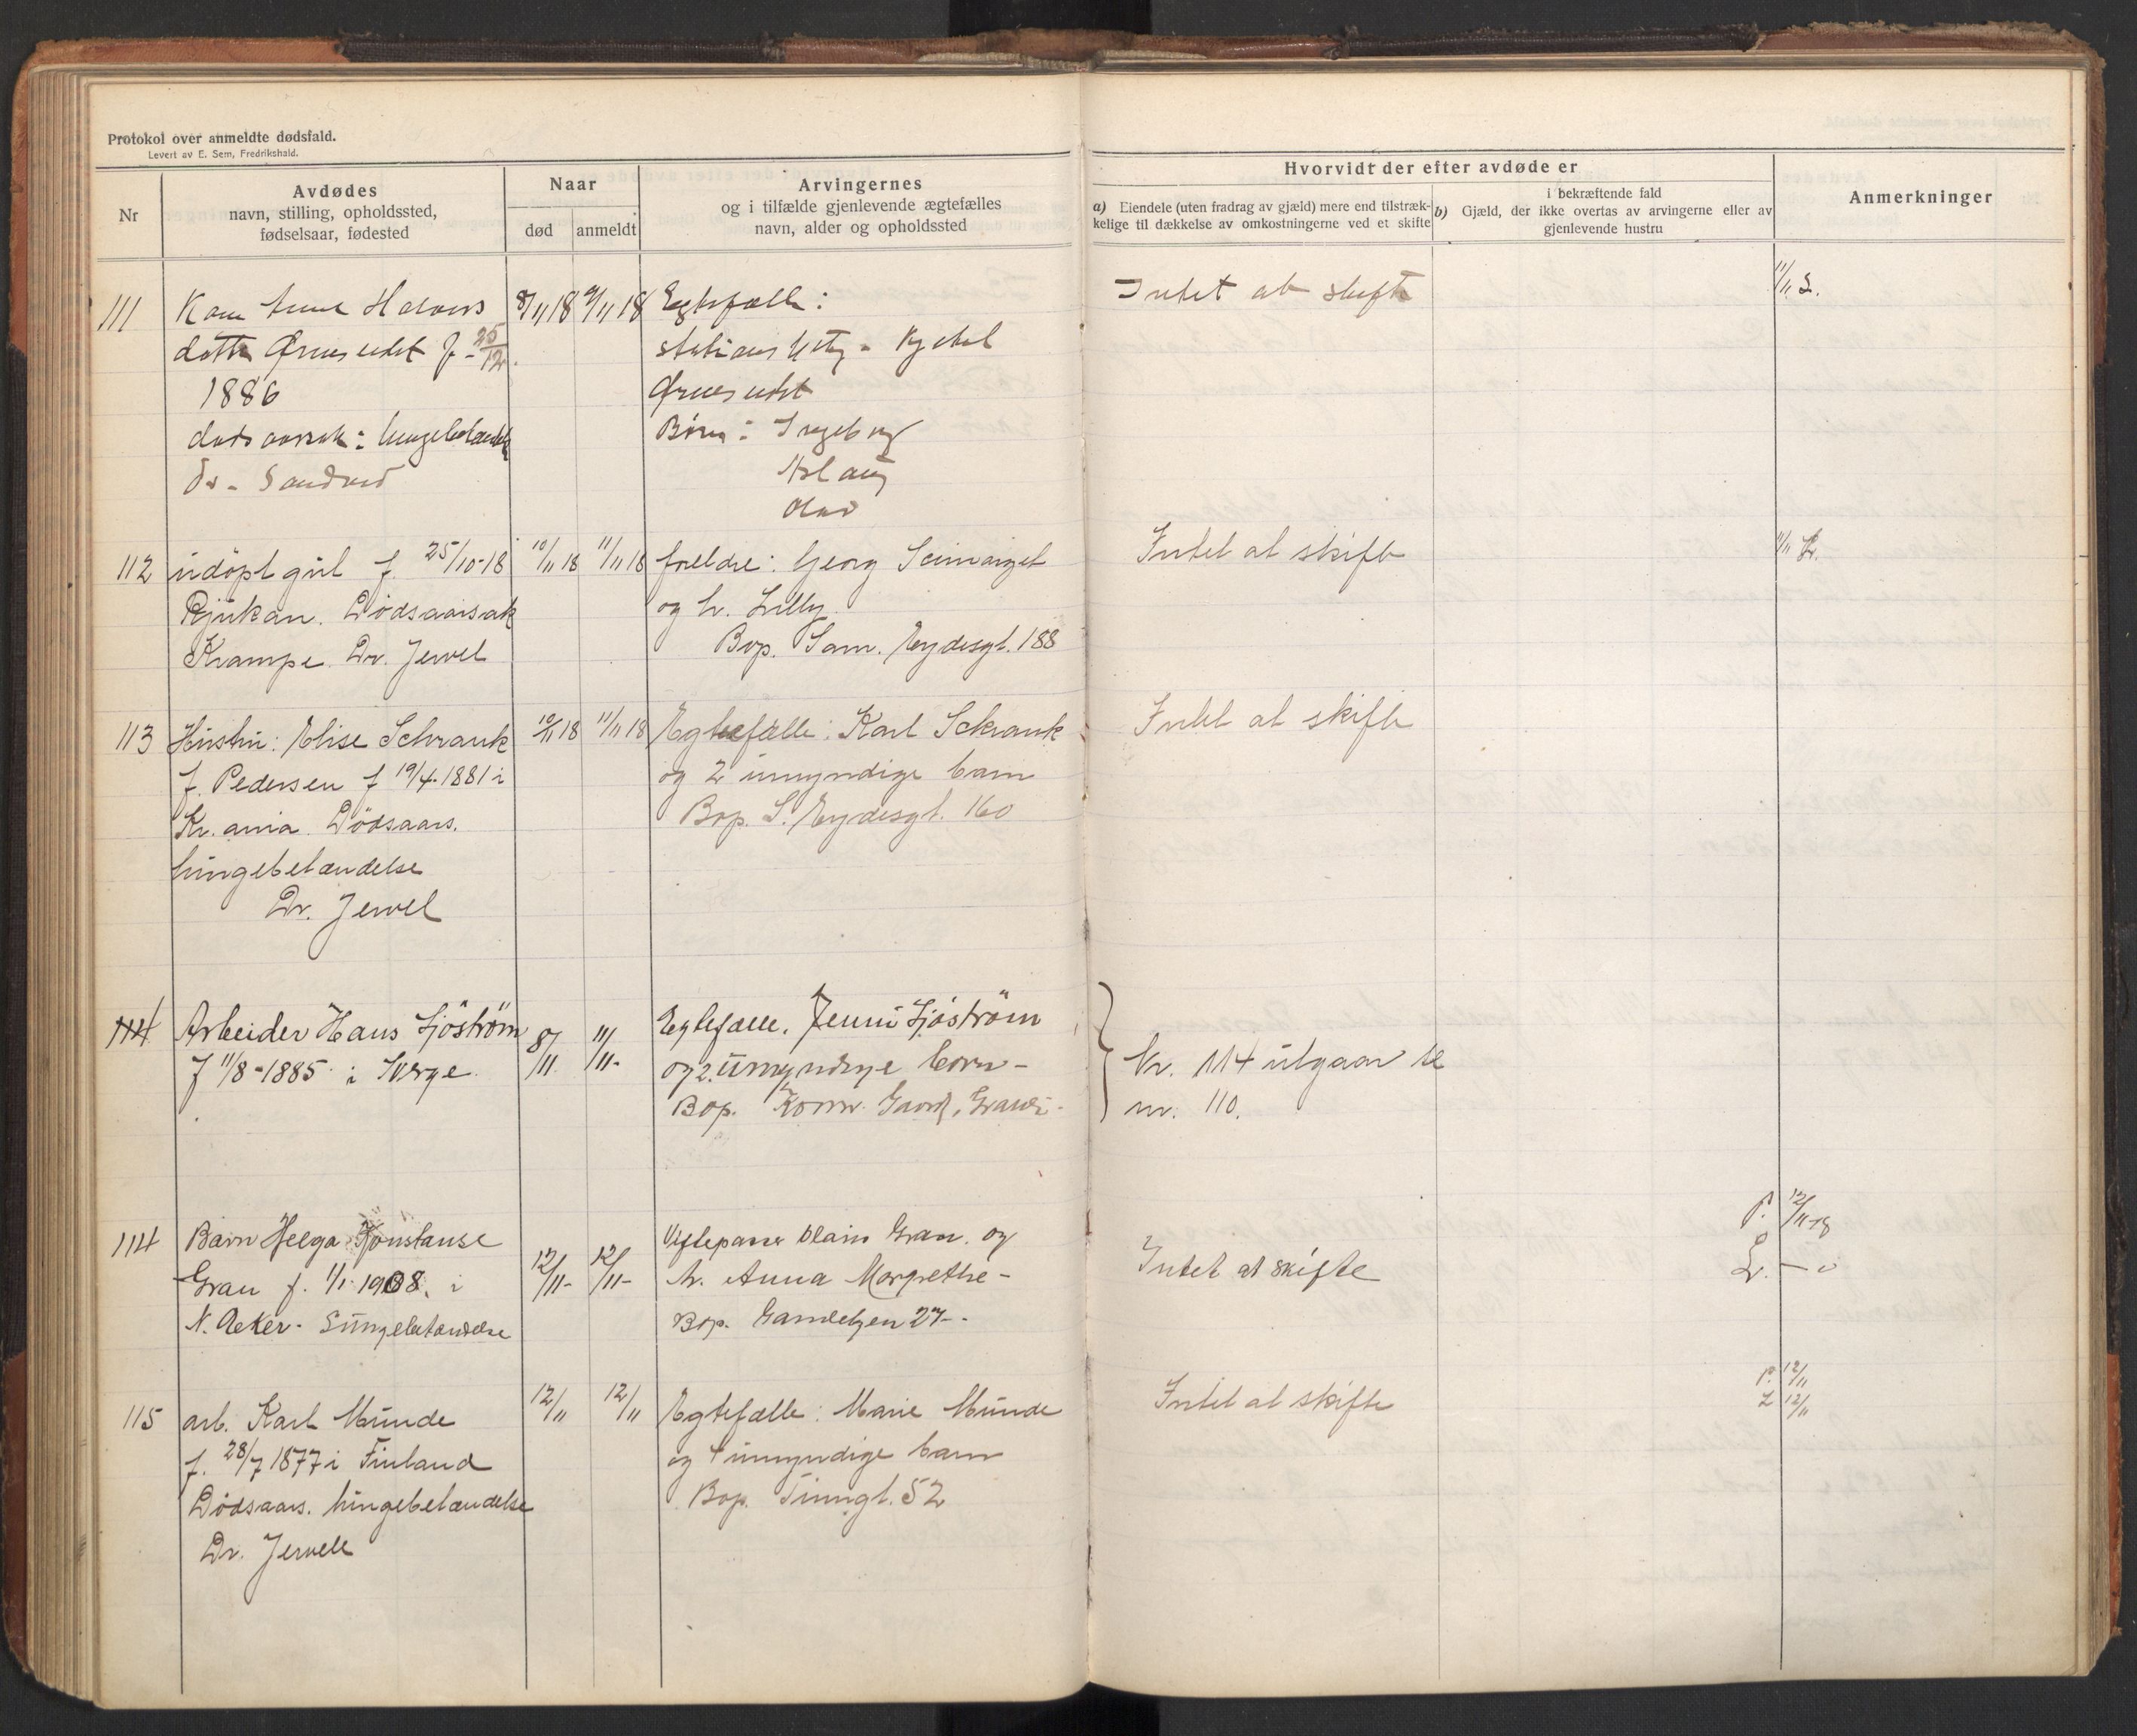 Protokol over anmeldte dødsfald.
Levert av E. Sem, Fredrikshald.
Nr
Avdødes
navn, stilling, opholdssted,
fødselsaar, fødested
Naar
død
anmeldt
Arvingernes
og i tilfælde gjenlevende ægtefælles
navn, alder og opholdssted
Hvorvidt der efter avdøde er
a) Eiendele (uten fradrag av gjæld) mere end tilstræk-
kelige til dækkelse av omkostningerne ved et skifte
i bekræftende fald
b) Gjæld, der ikke overtas av arvingerne eller av
gjenlevende hustru
Anmerkninger
111
Kone Anne Halvors
datter Ørnes f. 25/12
1886
dødsaarsak: Lungebetændelse
Dr. Sandvid
8/11 18
9/11 18
Egtefælle:
Kjetel
Børn: Ingeborg
Aslaug
Olav
Intet at skifte
11/11 L.
112
udöpt gut f. 25/10-18
Rjukan. Dödsaarsak
Krampe. Dr. Jervel
10/11 18
11/11 18
forældre: Georg
og h. Lilly.
Bop. Sam. Eydesgt. 188
Intet at skifte
11/11 L.
113
Hustru: Elise Schrank
f. Pedersen f 19/4-1881 i
Kr.ania Dödsaars.
lungebetændelse
Dr. Jervel
10/11 18
11/11 18
Egtefælle: Karl Schrank
og 2 umyndige barn
Bop. S. Eydesgt. 160
Intet at skifte
114
Arbeider Hans Sjöström
f 11/8-1885 i Sverge.
8/11
11/11-
Egtefælle. Jenni Sjöström
og 2 umyndige born-
Bop.
Nr. 114 utgaar se
nr. 110.
114
Barn Helga Konstanse
Gran f. 1/1 1908. i
N. Aeker- Lungebetændelse
12/11-
12/11-
Olais Gran. og
h. Anna Margrethe-
Bop. 27-.
Intet at skifte
P. 12/11-18
L. - o
115
arb. Karl Munde
f. 28/7 1877 i Finland
Dödsaars. lungebetændelse
Dr. Jervell
12/11
12/11
Egtefælle: Marie Munde
og 4 umyndige barn
Bop. Tinngt. 52
Intet at skifte
P. 12/11
L 12/11